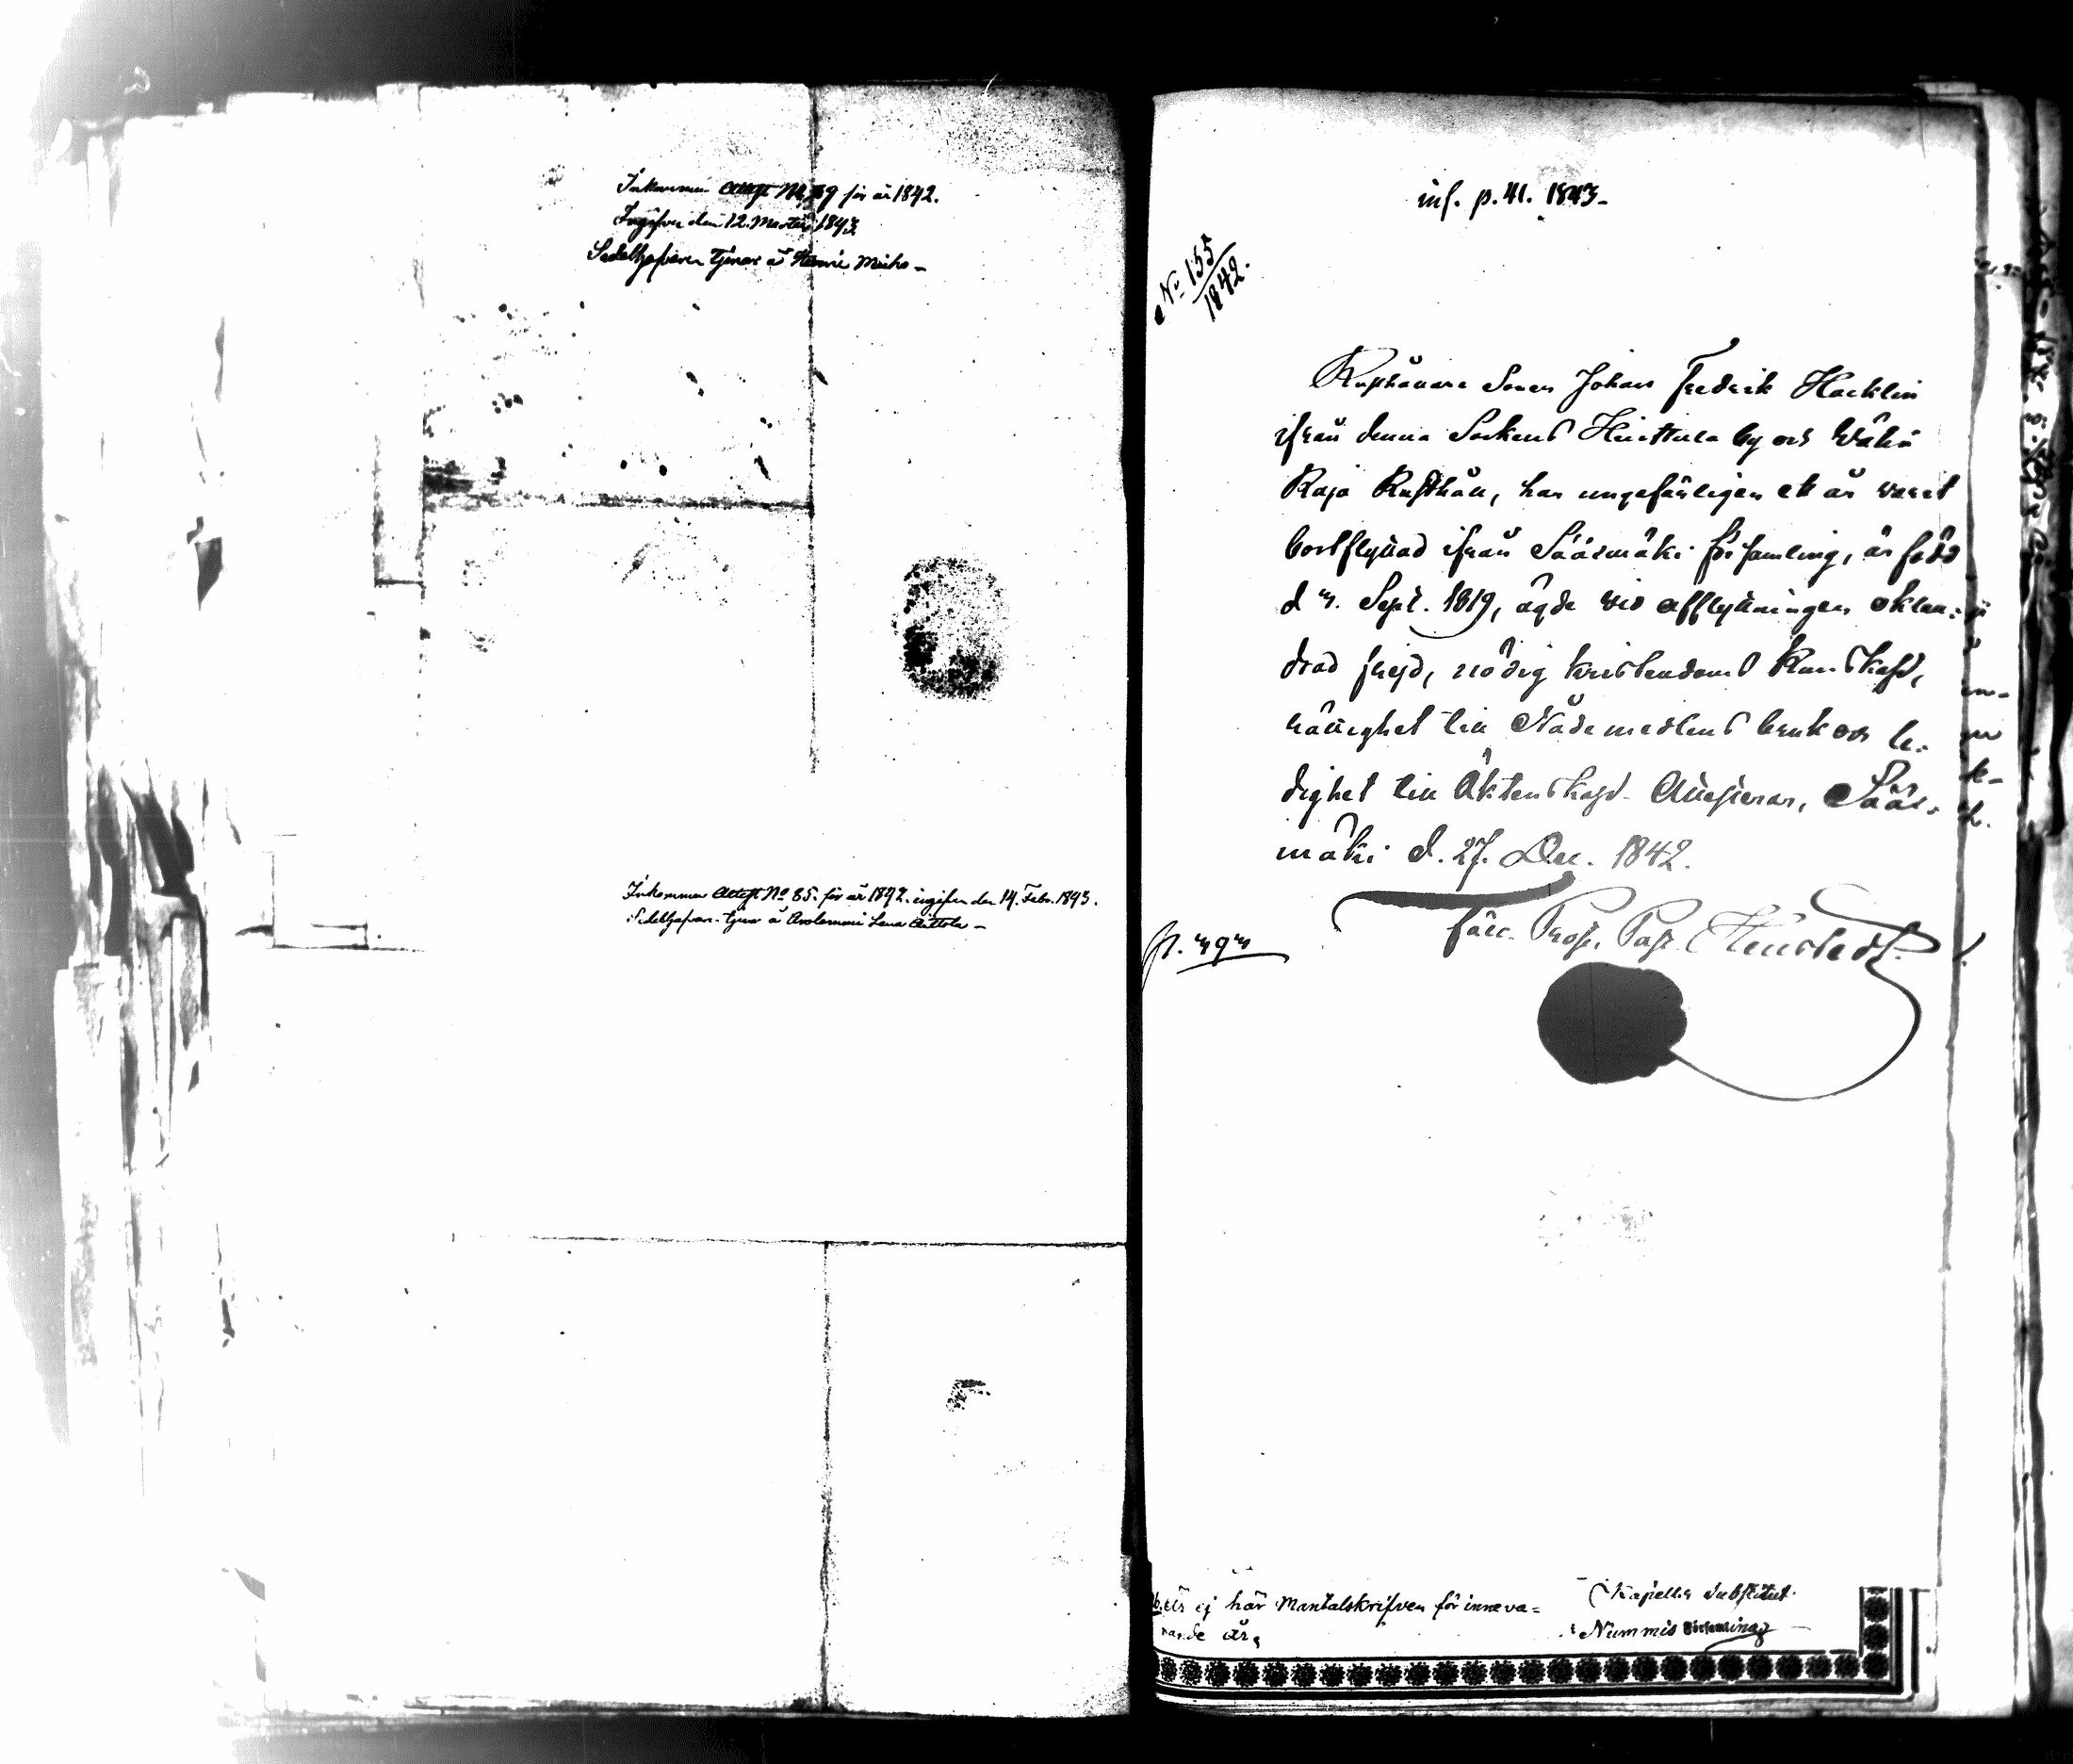 Inkommen Attest No 89 för år 1842.
Ingifven den 12. Martii 1843
Sedelhafvaren tjenar å Hanni Micko –
Inkommen Attest No 85. för år 1842. ingifven den 14. Febr. 1843.
Sedelhafvaren tjenar å Avolammi Lena Aittola –
inf. p. 41. 1843.
No 155
1842.
Rusthållare Sonen Johan Fredrik Hacklin
ifrån denna Sockens Huittula by och Wähä
Raja Rusthåll, har ungefärligen ett år varit
bortflyttad ifrån Sääxmäki församling, är född
d 4. Sept. 1819, ägde vid afflyttningen oklan:
drad frejd, nödig kristendoms kunskap,
rättighet till Nådemedlens bruk och le:
dighet till Äktenskap. Attesterar, Sääx-
mäki d. 27. Dec. 1842.
förr. Prost. Past.
p. 494
är ej här Mantalskrifven för inneva=
rande år.
Kapellks Substitut
i Nummis Församling